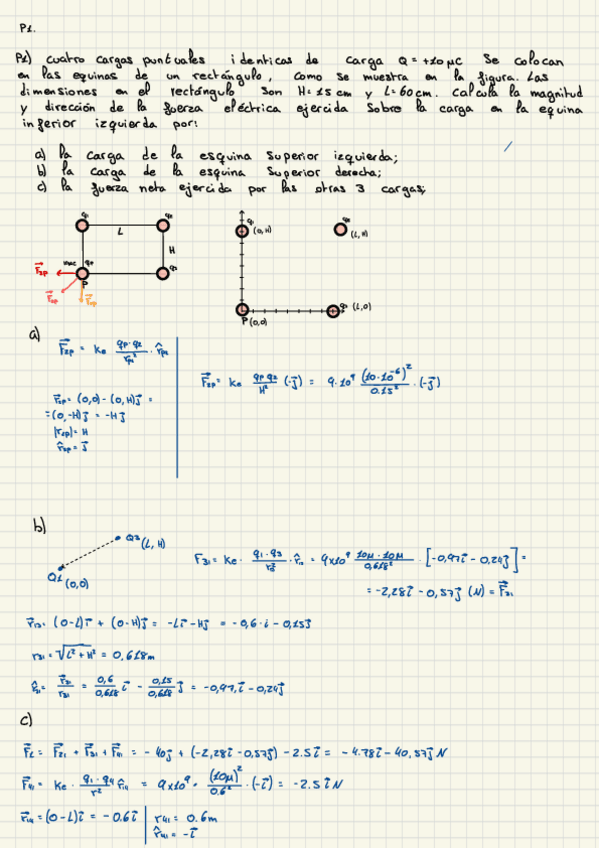 P1.
P1) cuatro cargas puntuales identicas de carga Q = +10 μC Se colocan
en las equinas de un rectángulo, como se muestra en la figura. Las
dimensiones en el rectángulo son H= 15 cm y L= 60 cm. Calcula la magnitud
y dirección de la fuerza eléctrica ejercida Sobre la carga en la equina
inferior izquierda por:
a) la carga de la esquina Superior izquierda;
b) la carga de la esquina Superior derecha;
c) la fuerza neta ejercida por las otras 3 cargas;
L
H
P
(0,H)
(L,H)
(L,0)
P (0,0)
a)
= (0,0) - (0,H)j⃗ =
= (0,-H)j⃗ = -Hj⃗
= H
= j⃗
(-j⃗) = 9·10⁹ (10·10⁻⁶)² / 0.15² · (-j⃗)
b)
Q3 (L,H)
Q1 (0,0)
F₃₁ = Ke · q₁·q₃ / = 9x10⁹ 10μ·10μ / 0,618² · [-0,97i⃗ - 0,24j⃗] =
= -2,28i⃗ - 0,57j⃗ (N) = F⃗₃₁
= (0-L)i⃗ + (0-H)j⃗ = -Li⃗ -Hj⃗ = -0,6·i - 0,15j⃗
r₃₁ = √L² + H² = 0,618m
= 0,6 / 0,618 i⃗ - 0,15 / 0,618 j⃗ = -0,97,i⃗ - 0,24j⃗
c)
= F⃗₂₁ + F⃗₃₁ + F⃗₄₁ = - 40j⃗ + (-2,28i⃗ - 0,57j⃗) - 2.5i⃗ = -4.78i⃗ - 40,57j⃗ N
F⃗₄₁ = Ke · q₁·q₄ / r² r̂₁₄ = 9x10⁹ · (10μ)² / 0.6² · (-i⃗) = -2.5i⃗ N
r⃗₁₄ = (0-L)i⃗ = -0.6i⃗
r₄₁ = 0.6m
r̂₄₁ = -i⃗